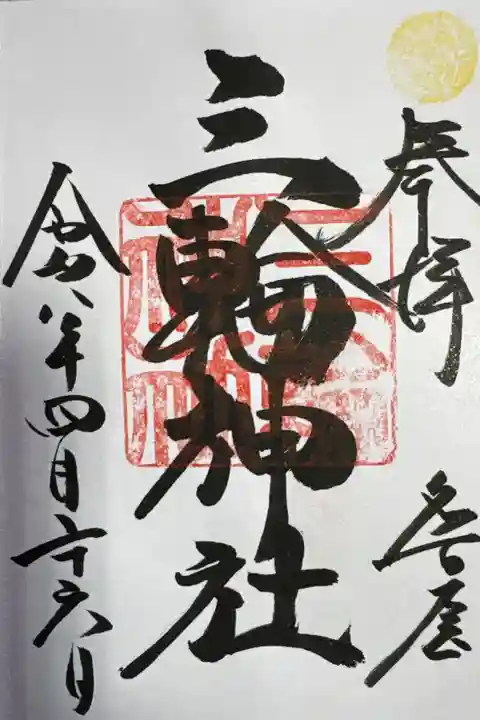 奉拝
名古屋
三輪神社
令和八年四月二十六日